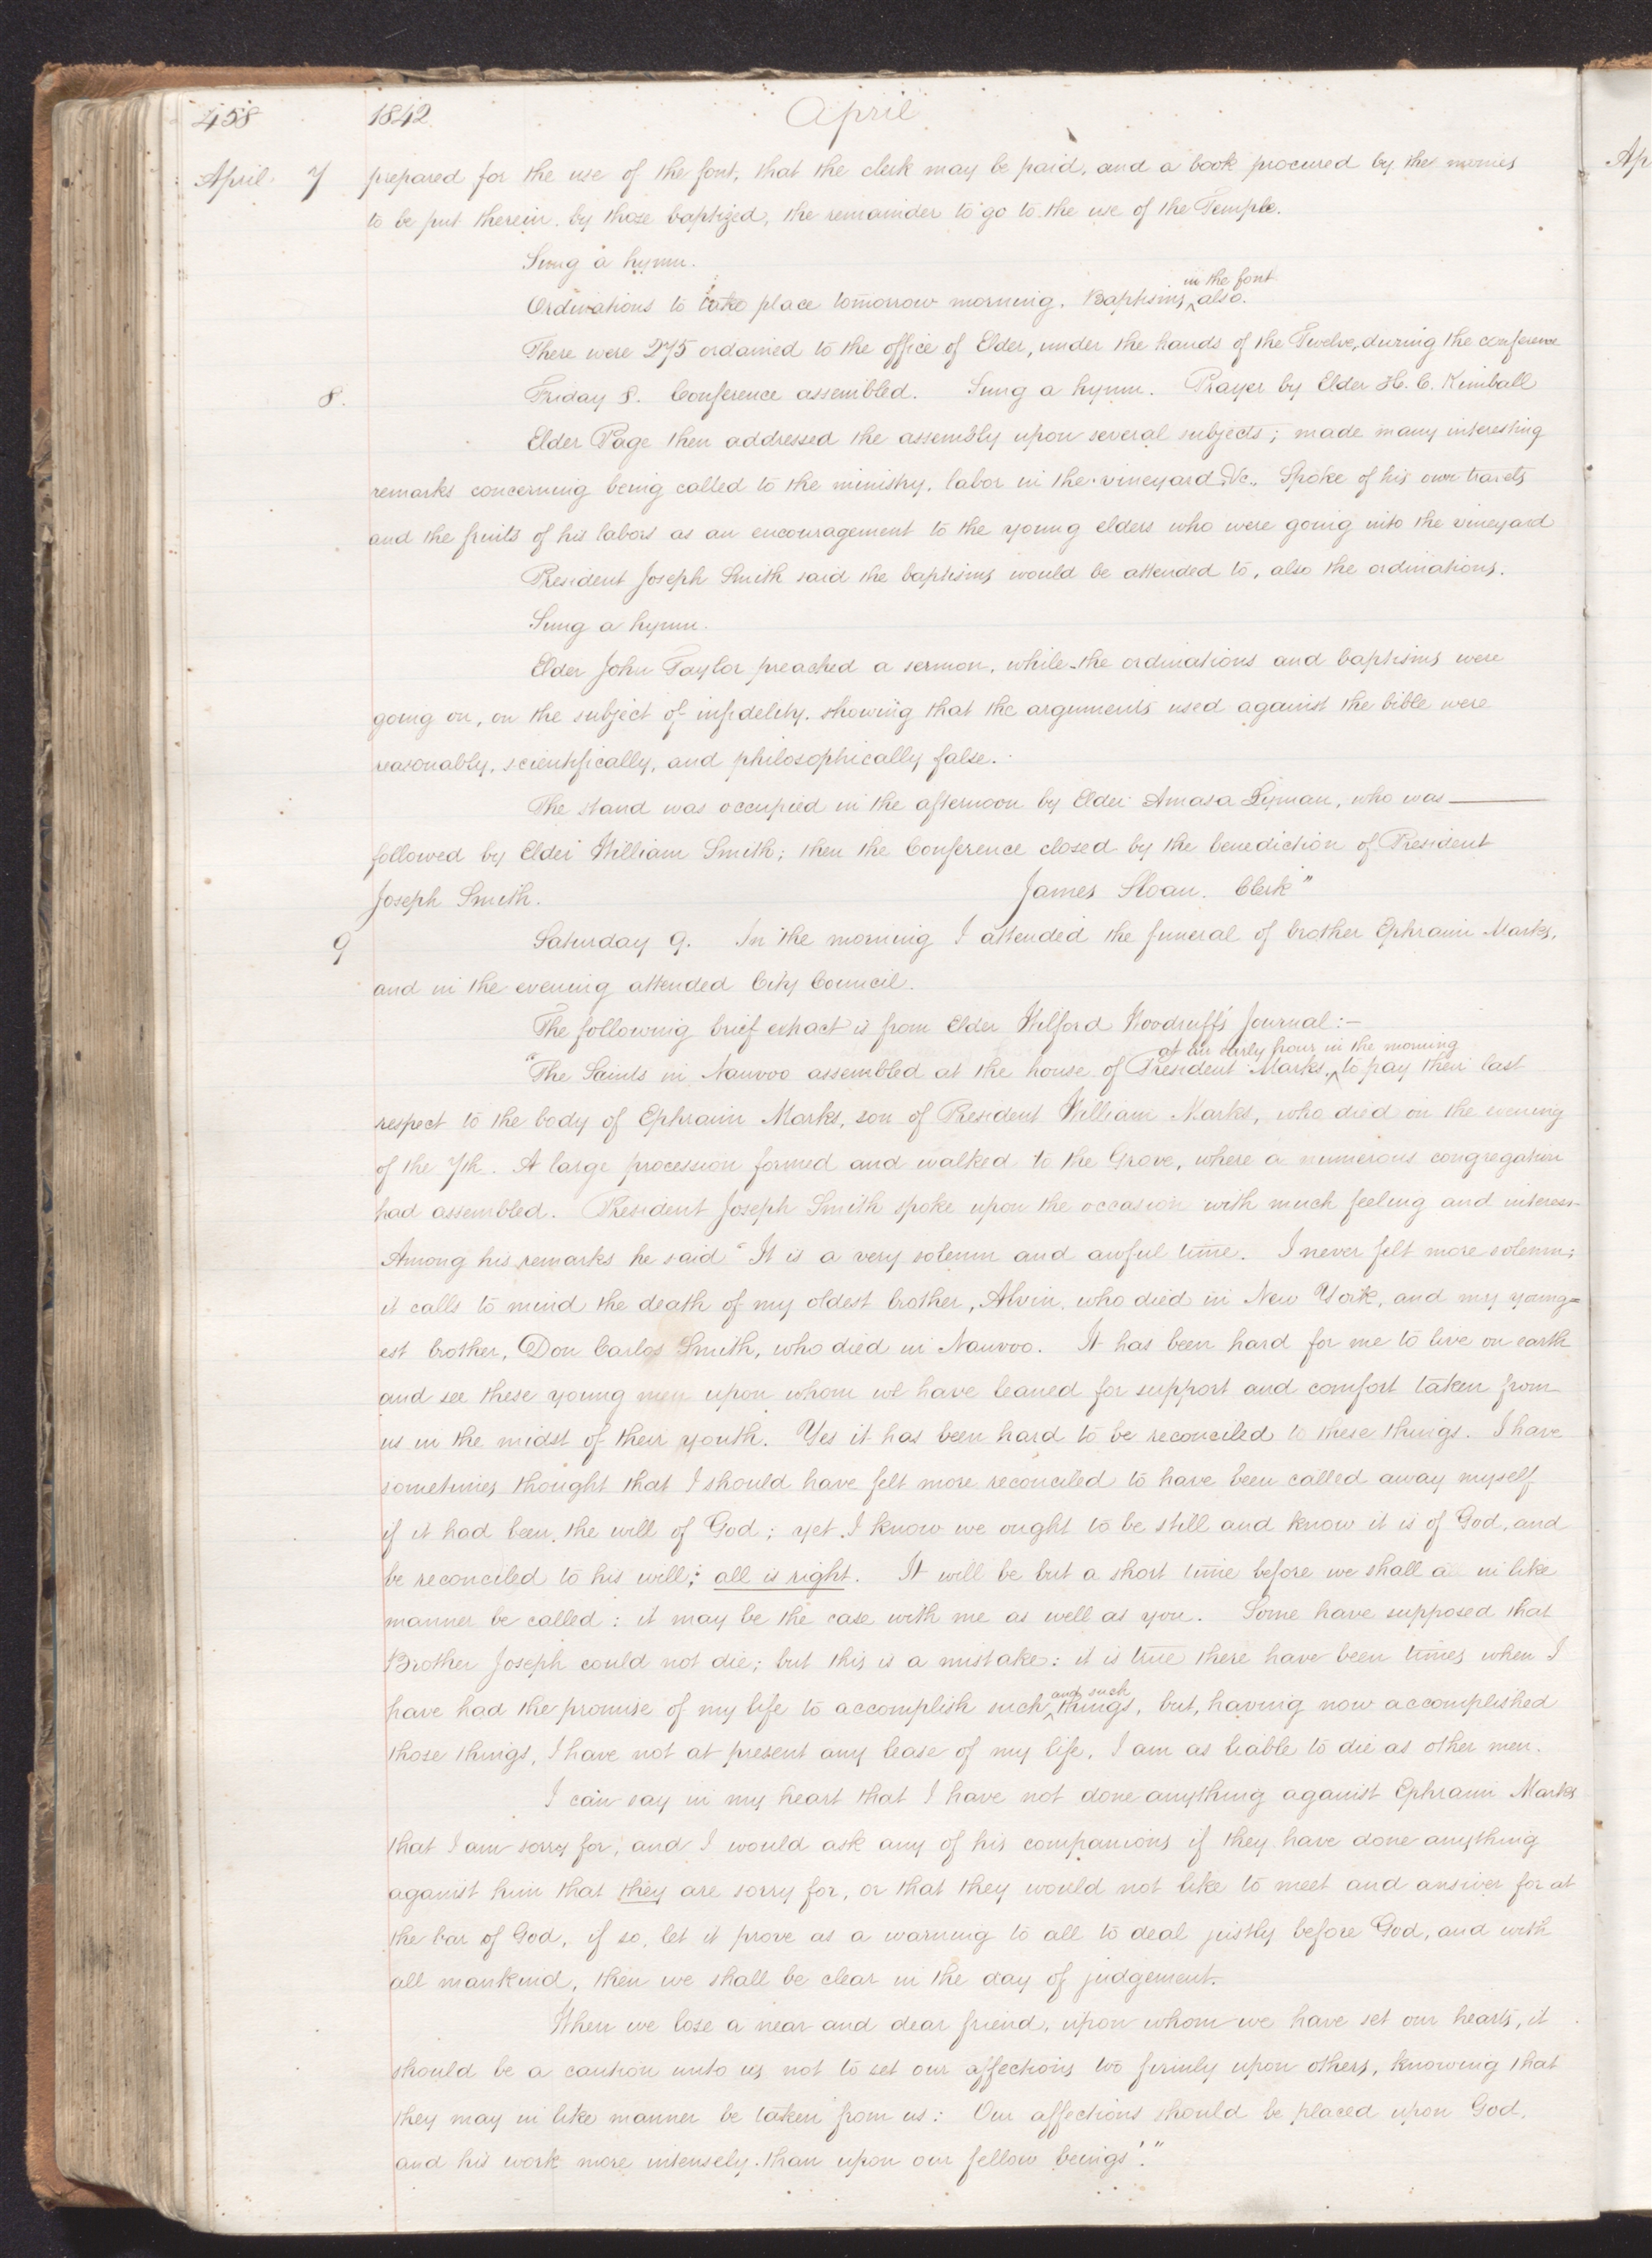 458 1842 April
April. 7 prepared for the use of the font, that the clerk may be paid, and a book procured by the monies
to be put therein by those baptized, the remainder to go to the use of the Temple.
Sung a hymn.
in the font
Ordinations to take place tomorrow morning. Baptisms ^ also.
There were 275 ordained to the office of Elder, under the hands of the Twelve, during the conference
8. Friday 8. Conference assembled. Sung a hymn. Prayer by Elder H. C. Kimball
Elder Page then addressed the assembly upon several subjects; made many interesting
remarks concerning being called to the ministry, labor in the vineyard &c., Spoke of his own travels
and the fruits of his labors as an encouragement to the young elders who were going into the vineyard
President Joseph Smith said the baptisms would be attended to, also the ordinations.
Sung a hymn.
Elder John Taylor preached a sermon, while the ordinations and baptisms were
going on, on the subject of infidelity, showing that the arguments used against the bible were
reasonably, scientifically, and philosophically false.
The stand was occupied in the afternoon by Elder Amasa Lyman, who was ———
followed by Elder William Smith; then the Conference closed by the benediction of President
Joseph Smith. James Sloan. Clerk"
9 Saturday 9. In the morning I attended the funeral of brother Ephraim Marks,
and in the evening attended City Council.
The following brief extract is from Elder Wilford Woodruff's Journal:—
at an early hour in the morning
"The Saints in Nauvoo assembled at the house of President Marks, ^ to pay their last
respect to the body of Ephraim Marks, son of President William Marks, who died on the evening
of the 7th. A large procession formed and walked to the Grove, where a numerous congregation
had assembled. President Joseph Smith spoke upon the occasion with much feeling and interest.
Among his remarks he said "It is a very solemn and awful time. I never felt more solemn;
it calls to mind the death of my oldest brother, Alvin, who died in New York, and my young=
est brother, Don Carlos Smith, who died in Nauvoo. It has been hard for me to live on earth
and see these young men upon whom we have leaned for support and comfort taken from
us in the midst of their youth. Yes it has been hard to be reconciled to these things. I have
sometimes thought that I should have felt more reconciled to have been called away myself
if it had been the will of God; yet I know we ought to be still and know it is of God, and
be reconciled to his will; all is right. It will be but a short time before we shall a in like
manner be called: it may be the case with me as well as you. Some have supposed that
Brother Joseph could not die; but this is a mistake: it is true there have been times when I
and such
have had the promise of my life to accomplish such ^ things, but, having now accomplished
those things, I have not at present any lease of my life, I am as liable to die as other men.
I can say in my heart that I have not done anything against Ephraim Marks
that I am sorry for, and I would ask any of his companions if they have done anything
against him that they are sorry for, or that they would not like to meet and answer for at
the bar of God, if so, let it prove as a warning to all to deal justly before God, and with
all mankind, then we shall be clear in the day of judgement.
When we lose a near and dear friend, upon whom we have set our hearts, it
should be a caution unto us not to set our affections too firmly upon others, knowing that
they may in like manner be taken from us: Our affections should be placed upon God,
and his work more intensely than upon our fellow beings'."
Ap